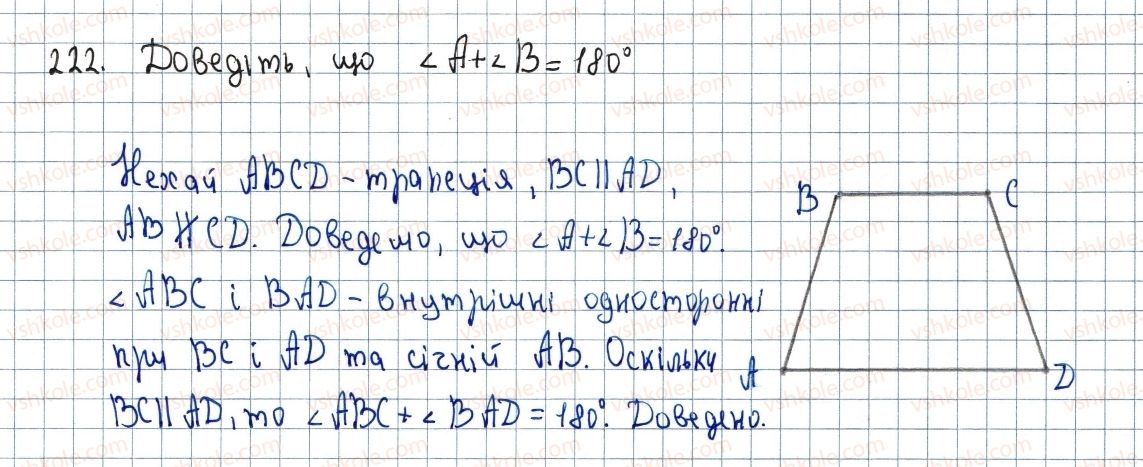 222. Доведіть, що ∠A+∠B=180°
Нехай ABCD - трапеція, BC||AD,
AB∦CD. Доведемо, що ∠A+∠B=180°.
B C
∠ABC і BAD - внутрішні односторонні
при BC і AD та січній AB. Оскільки
A D
BC||AD, то ∠ABC+∠BAD=180°. Доведено.
vshkole.com